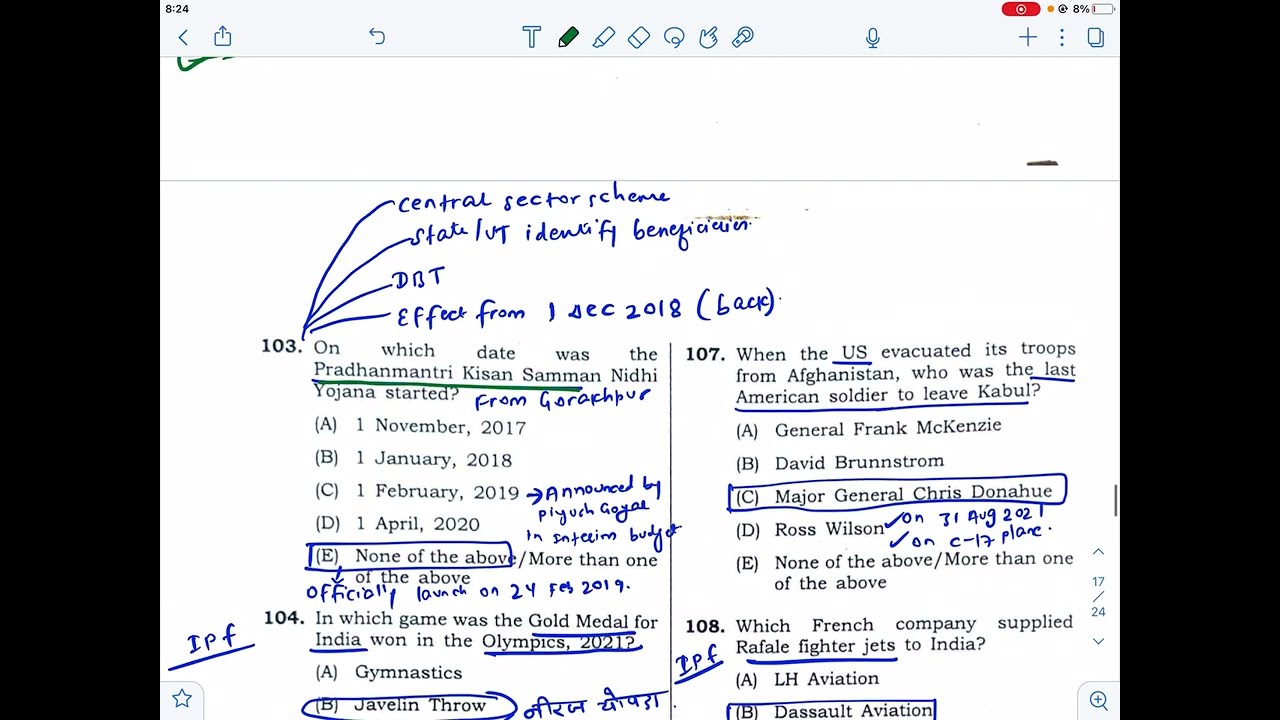 8:24
8%
central sector scheme
State/UT identify beneficiaries.
DBT
Effect from 1 Dec 2018 (back).
103. On which date was the
Pradhanmantri Kisan Samman Nidhi
Yojana started? From Gorakhpur
(A) 1 November, 2017
(B) 1 January, 2018
(C) 1 February, 2019 → Announced by
Piyush Goyal
(D) 1 April, 2020
in interim budget
(E) None of the above/More than one
of the above
officially launch on 24 Feb 2019.
104. In which game was the Gold Medal for
India won in the Olympics, 2021?
IPf
(A) Gymnastics
(B) Javelin Throw नीरज चोपड़ा
107. When the US evacuated its troops
from Afghanistan, who was the last
American soldier to leave Kabul?
(A) General Frank McKenzie
(B) David Brunnstrom
(C) Major General Chris Donahue
(D) Ross Wilson ✓on 31 Aug 2021
✓on C-17 plane.
(E) None of the above/More than one
of the above
108. Which French company supplied
Rafale fighter jets to India?
IPf
(A) LH Aviation
(B) Dassault Aviation
17
/
24